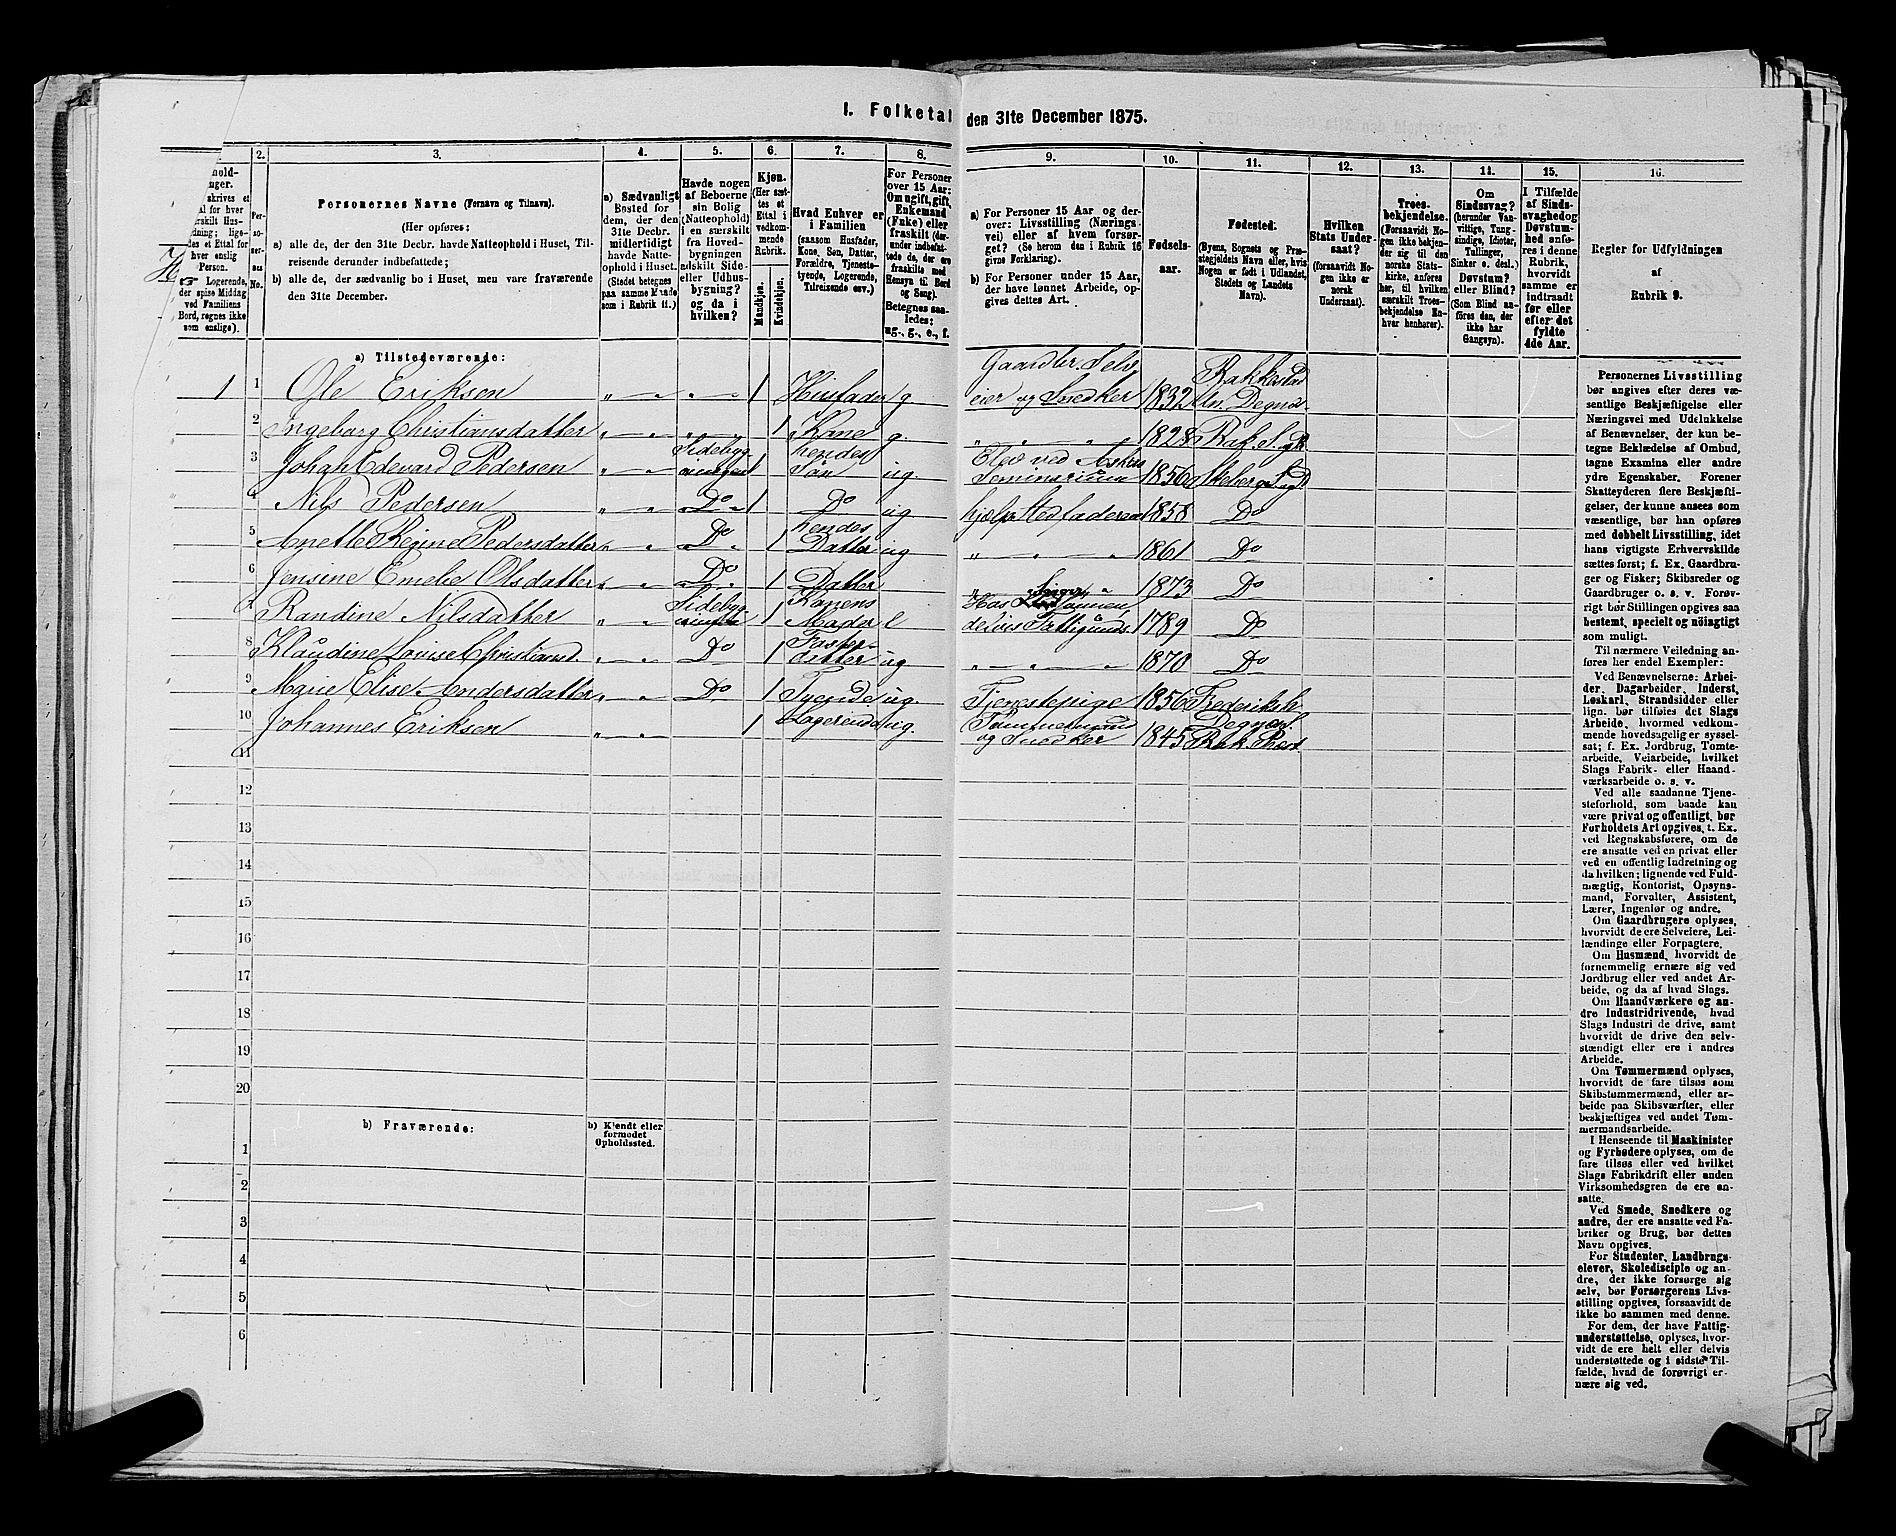 I. Folketal den 31te December 1875.
2. 3. 4. 5. 6. 7. 8. 9. 10. 11. 12. 13. 14. 15. 16.
hold-
nger.
skrives et
al for hver
rskilt Hus-
dning; lige-
des et Ettal for
hver enslig
Person.
Logerende,
der spise Middag
ved Familiens
Bord, regnes ikke
som enslige).
Per-
so-
ner-
nes
No.
Personernes Navne (Fornavn og Tilnavn).
(Her opføres:
a) alle de, der den 31te Decbr. havde Natteophold i Huset, Til-
reisende derunder indbefattede;
b) alle de, der sædvanlig bo i Huset, men vare fraværende
den 31te December.
a) Sædvanligt
Bosted for
dem, der den
31te Decbr.
midlertidigt
havde Natte-
ophold i Huset.
(Stedet betegnes
paa samme Maade
som i Rubrik 11.)
Havde nogen
af Beboerne
sin Bolig
(Natteophold)
i en særskilt
fra Hoved-
bygningen
adskilt Side-
eller Udhus-
bygning?
og da i
hvilken?
Kjøn.
(Her sæt-
tes et
Ettal i
vedkom-
mende
Rubrik.
Mandkjøn.
Kvindekjøn.
Hvad Enhver er
i Familien
(saasom Husfader,
Kone, Søn, Datter,
Forældre, Tjeneste-
tyende, Logerende,
Tilreisende osv.)
For Personer
over 15 Aar:
Om ugift, gift,
Enkemand
(Enke) eller
fraskilt (der-
under indbefat-
tede de, der ere
fraskilte med
Hensyn til Bord
og Seng).
Betegnes saa-
ledes:
ug., g., e., f.
a) For Personer 15 Aar og der-
over: Livsstilling (Nærings-
vei) eller af hvem forsør-
get? (Se herom den i Rubrik 16
givne Forklaring).
b) For Personer under 15 Aar,
der have lønnet Arbeide, op-
gives dettes Art.
Fødsels-
aar.
Fødested.
(Byens, Sognets og Præ-
stegjeldets Navn eller, hvis
Nogen er født i Udlandet,
Stedets og Landets
Navn).
Hvilken
Stats Under-
saat?
(forsaavidt No-
gen ikke er
norsk
Undersaat).
Troes-
bekjendelse.
(Forsaavidt No-
gen ikke bekjen-
der sig til den
norske Stats-
kirke, anføres
her, til hvilken
særskilt Troes-
bekjendelse En-
hver henhører).
Om
Sindssvag?
(herunder Van-
vittige, Tung-
sindige, Idioter,
Tullinger,
Sinker o. desl.)
Døvstum?
eller Blind?
(Som Blind an-
føres den, der
ikke har
Gangsyn).
I Tilfælde
af Sinds-
svaghed og
Døvstum-
hed anfø-
res i denne
Rubrik,
hvorvidt
samme er
indtraadt
før eller
efter det
fyldte
4de Aar.
Regler for Udfyldningen
af
Rubrik 9.
a) Tilstedeværende:
1 1 Ole Eriksen 1 Husfader g Gaardbr. Selv
eier og Snedker 1832 Rakkestad
2 Ingeborg Christiansdatter 1 Kone g. 1828
3 Johan Edevard Pedersen Sidebyg-
ningen 1 hendes
Søn ug. Elev ved Askers
Seminarium 1856
4 Nils Pedersen Do 1 Do ug hjelper Stedfaderen 1858 Do
5 Anette Regine Pedersdatter Do 1 hendes
Datter ug 1861 Do
6 Jensine Emelie Olsdatter Do 1 Datter 1873 Do
7 Randine Nilsdatter Sidebyg-
1 Konens
Moder Has
delvis Fattigunds. 1789 Do
8 Klaudine Lovise Christiansd. Do 1 Foster-
datter ug 1870 Do
9 Marie Elise Andersdatter Do 1 Tyende ug. Tjenestepige 1856
10 Johannes Eriksen 1 Logerende ug. Tømmermand
og Snedker 1845
11
12
13
14
15
16
17
18
19
20
b) Fraværende:
b) Kjendt eller
formodet
Opholdssted.
1
2
3
4
5
6
Personernes Livsstilling
bør angives efter deres væ-
sentlige Beskjæftigelse eller
Næringsvei med Udelukkelse
af Benævnelser, der kun be-
tegne Beklædelse af Ombud,
tagne Examina eller andre
ydre Egenskaber. Forener
Skatteyderen flere Beskjæfti-
gelser, der kunne ansees som
væsentlige, bør han opføres
med dobbelt Livsstilling, idet
hans vigtigste Erhvervskilde
sættes først; f. Ex. Gaardbru-
ger og Fisker; Skibsreder og
Gaardbruger o. s. v. Forøv-
rigt bør Stillingen opgives saa
bestemt, specielt og nøiagtigt
som muligt.
Til nærmere Veiledning an-
føres her endel Exempler:
Ved Benævnelserne: Arbei-
der, Dagarbeider, Inderst,
Løskarl, Strandsidder eller
lign. bør tilføies det Slags
Arbeide, hvormed vedkom-
mende hovedsagelig er syssel-
sat; f. Ex. Jordbrug, Tomte-
arbeide, Veiarbeide, hvilket
Slags Fabrik- eller Haand-
værksarbeide o. s. v.
Ved alle saadanne Tjene-
steforhold, som baade kan
være privat og offentligt, bør
Forholdets Art opgives, t. Ex.
ved Regnskabsførere, om de
ere ansatte ved en privat eller
ved en offentlig Indretning og
da hvilken; lignende ved Fuld-
mægtig, Kontorist, Opsyns-
mand, Forvalter, Assistent,
Lærer, Ingeniør og andre.
Om Gaardbrugere oplyses,
hvorvidt de ere Selveiere, Lei-
lændinge eller Forpagtere.
Om Husmænd, hvorvidt de
fornemmelig ernære sig ved
Jordbrug eller ved andet Ar-
beide, og da af hvad Slags.
Om Haandværkere og an-
dre Industridrivende, hvad
Slags Industri de drive, samt
hvorvidt de drive den selv-
stændigt eller ere i andres
Arbeide.
Om Tømmermænd oplyses,
hvorvidt de fare tilsøs som
Skibstømmermænd, eller ar-
beide paa Skibsværfter, eller
beskjæftiges ved andet Tøm-
mermandsarbeide.
I Henseende til Maskinister
og Fyrbødere oplyses, om de
fare tilsøs eller ved hvilket
Slags Fabrikdrift eller anden
Virksomhedsgren de ere an-
satte.
Ved Smede, Snedkere og
andre, der ere ansatte ved Fa-
briker og Brug, bør dettes
Navn opgives.
For Studenter, Landbrugs-
elever, Skoledisciple og an-
dre, der ikke forsørge sig
selv, bør Forsørgerens Livs-
stilling opgives, forsaavidt de
ikke bo sammen med denne.
For dem, der have Fattig-
understøttelse, oplyses, hvor-
vidt de ere helt eller delvis
understøttede og i sidste Til-
fælde, hvad de forøvrigt er-
nære sig ved.